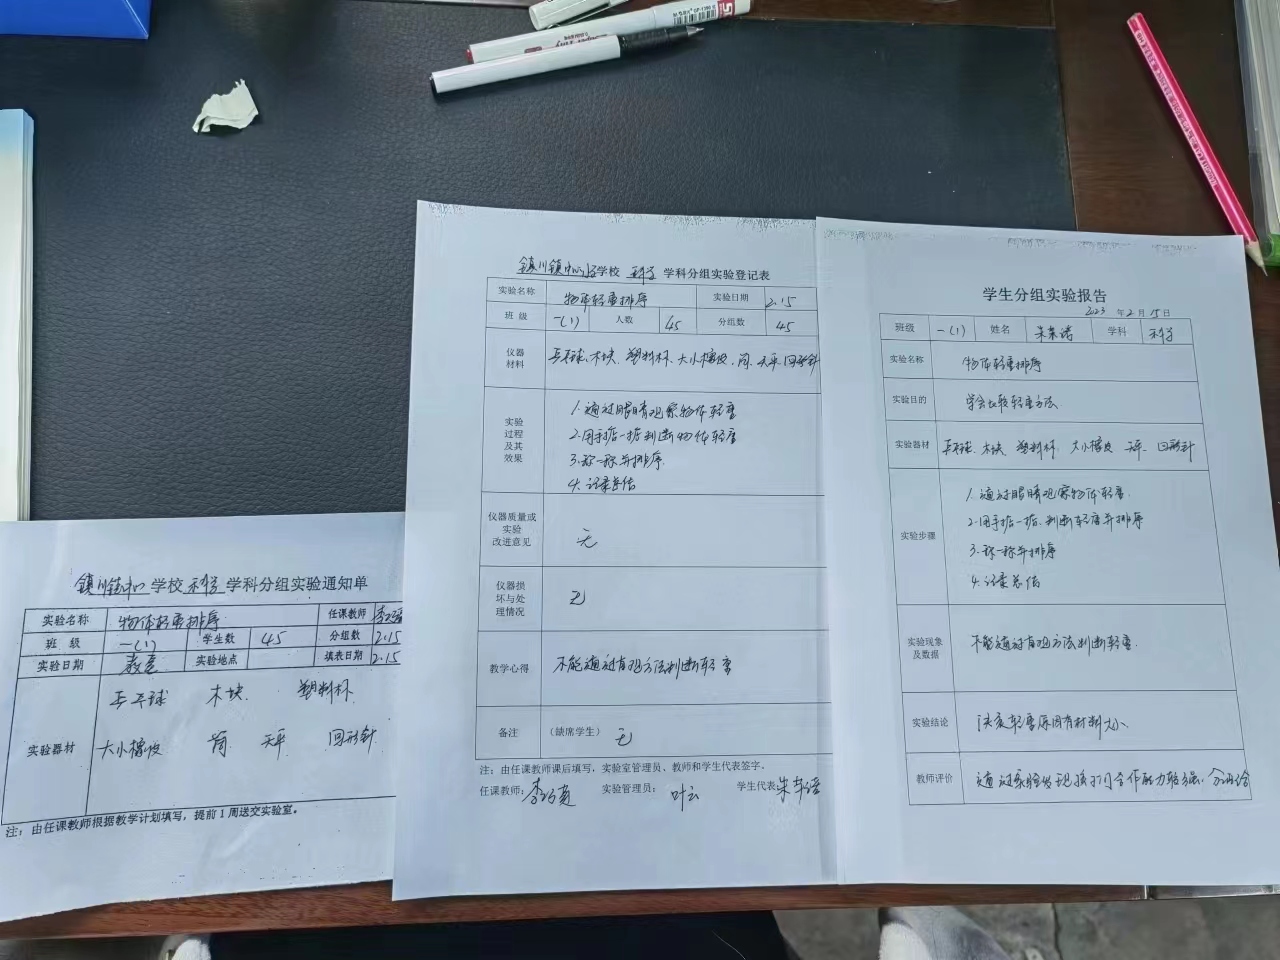 镇川镇中心学校 科学 学科分组实验通知单
实验名称 物体轻重排序 任课教师
班 级 一(1) 学生数 45 分组数 2.15
实验日期 教室 实验地点 填表日期 2.15
实验器材
乒乓球 木块 塑料杯
大小橡皮 筒 天平 回形针
注：由任课教师根据教学计划填写，提前 1 周送交实验室。
镇川镇中心学校 科学 学科分组实验登记表
实验名称 物体轻重排序 实验日期 2.15
班 级 一(1) 人数 45 分组数 45
仪器材料 乒乓球、木块、塑料杯、大小橡皮、筒、天平、回形针
实验过程及其效果
1.通过眼睛观察物体轻重
2.用手掂一掂判断物体轻重
3.称一称并排序
4.记录总结
仪器质量或实验改进意见 无
仪器损坏与处理情况 无
教学心得 不能通过直观方法判断轻重
备注 (缺席学生) 无
注：由任课教师课后填写，实验室管理员、教师和学生代表签字。
任课教师： 实验室管理员： 叶云 学生代表
学生分组实验报告
2023 年 2 月 15 日
班级 一(1) 姓名 学科 科学
实验名称 物体轻重排序
实验目的 学会比较轻重方法
实验器材 乒乓球 木块 塑料杯 大小橡皮 天平 回形针
实验步骤
1.通过眼睛观察物体轻重
2.用手掂一掂判断轻重并排序
3.称一称并排序
4.记录总结
实验现象及数据 不能通过直观方法判断轻重
实验结论 决定轻重原因有材料大小
教师评价 通过实验发现孩子们合作能力较强